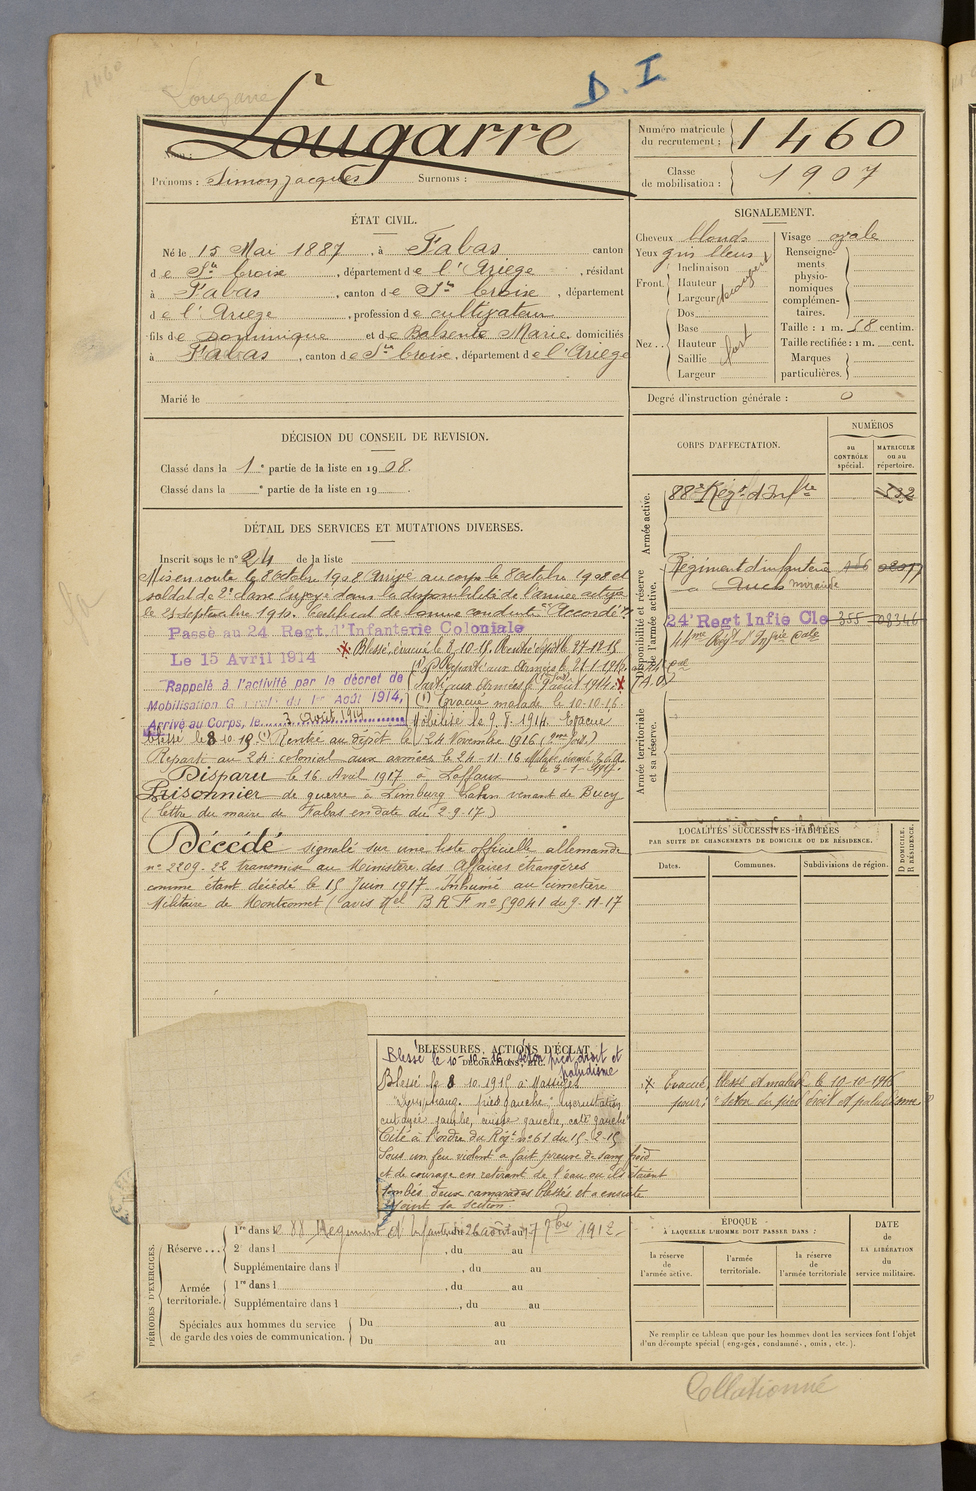 1460
Lougarre
D. I
Nom :
Lougarre
Prénoms : Simon Jacques Surnoms :
Numéro matricule
du recrutement : 1460
Classe
de mobilisation : 1907
ÉTAT CIVIL.
Né le 15 Mai 1887, à Fabas canton
de Ste Croix, département de l'Ariège, résidant
à Fabas, canton de Ste Croix, département
de l'Ariège, profession de cultivateur
fils de Dominique et de Balsente Marie, domiciliés
à Fabas, canton de Ste Croix, département de l'Ariège
Marié le
SIGNALEMENT.
Cheveux blonds
Yeux gris bleus
Front. Inclinaison
Hauteur
Largeur
découvert
Nez.. Dos
Base
Hauteur
Saillie
Largeur
fort
Visage ovale
Renseigne-
ments
physio-
nomiques
complémen-
taires.
Taille : 1 m. 58 centim.
Taille rectifiée : 1 m. cent.
Marques
particulières.
Degré d'instruction générale : 0
DÉCISION DU CONSEIL DE REVISION.
Classé dans la 1e partie de la liste en 1908.
Classé dans la e partie de la liste en 19 .
DÉTAIL DES SERVICES ET MUTATIONS DIVERSES.
Inscrit sous le no 24 de la liste
Mis en route le 8 octobre 1908 Arrivé au corps le 8 octobre 1908 et
soldat de 2e classe Envoyé dans la disponibilité de l'armée active
le 25 septembre 1910. Certificat de bonne conduite "Accordé".
Passé au 24 Regt d'Infanterie Coloniale
Le 15 Avril 1914
Blessé, évacué le 8-10-15. Rentré dépôt le 27-12-15
Reparti aux Armées le 21-1-1916.
Rappelé à l'activité par le décret de
Mobilisation Générale du 1er Août 1914,
Arrivé au Corps, le 3 Août 1914
Parti aux Armées le 7 août 1914.
(1) Evacué malade le 10-10-16.
Mobilisé le 9. 8. 1914. Evacué
blessé le 8 10 15 (1) Rentré au dépôt le 24 Novembre 1916
Reparti au 24e colonial aux armées le 24-11-16
le 3-1-1917.
Disparu le 16 Avril 1917 à Laffaux
Prisonnier de guerre à Limburg Lahn venant de Bucy
(lettre du maire de Fabas en date du 2-9-17)
Décédé signalé sur une liste officielle allemande
no 2209-22 transmise au Ministère des Affaires étrangères
comme étant décédé le 15 Juin 1917. Inhumé au cimetière
Militaire de Montcornet (avis Mel B R F no 59041 du 9-11-17
CORPS D'AFFECTATION.
NUMÉROS
au
CONTRÔLE
spécial.
MATRICULE
ou au
répertoire.
Armée active.
88e Régt d'Infie
532
Disponibilité et réserve
de l'armée active.
Régiment d'infanterie
à Auch Mirande
24e Regt Infie Cle 355 08346
44me Régt d'Infrie Colle
Armée territoriale
et sa réserve.
LOCALITÉS SUCCESSIVES HABITÉES
PAR SUITE DE CHANGEMENTS DE DOMICILE OU DE RÉSIDENCE.
Dates.
Communes.
Subdivisions de région.
D DOMICILE.
R RÉSIDENCE.
Evacué, blessé et malade le 10-10-1916
pour; "Séton du pied droit et paludisme"
BLESSURES, ACTIONS D'ÉCLAT,
DÉCORATIONS, ETC.
Blessé le 10-10-16. séton pied droit et
paludisme
Blessé le 8 10. 1915 à Massiges
pied gauche, incrustation
jambe, cuisse gauche, côté gauche"
Cité à l'ordre du Régt no 61 du 15-2-15
Sous un feu violent a fait preuve de sang froid
et de courage en retirant de l'eau où ils étaient
tombés deux camarades blessés et a ensuite
rejoint sa section.
PÉRIODES D'EXERCICES.
Réserve...
1re dans le 88 Régiment d'Infanterie du 26 août au 17 7bre 1912
2e dans l , du au
Supplémentaire dans l , du au
Armée
territoriale.
1re dans l , du au
Supplémentaire dans l , du au
Spéciales aux hommes du service
de garde des voies de communication.
Du au
Du au
ÉPOQUE
À LAQUELLE L'HOMME DOIT PASSER DANS :
la réserve
de
l'armée active.
l'armée
territoriale.
la réserve
de
l'armée territoriale
DATE
de
LA LIBÉRATION
du
service militaire.
Ne remplir ce tableau que pour les hommes dont les services font l'objet
d'un décompte spécial (engagés, condamnés, omis, etc.).
Collationné